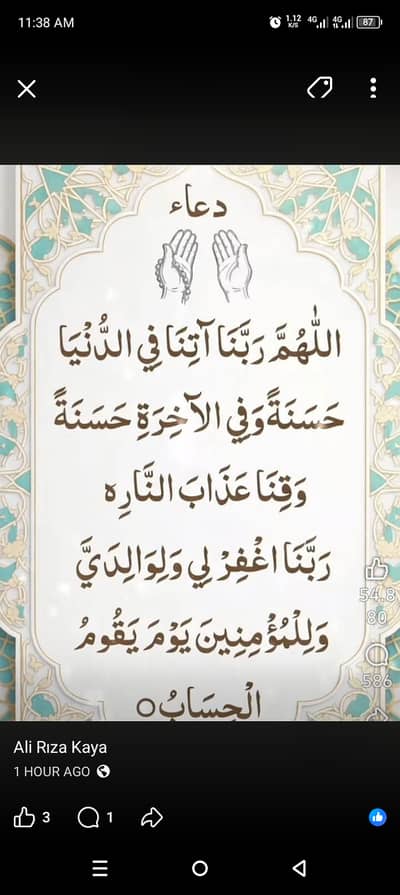 11:38 AM
1.12 K/S 4G 4G 87
دعاء
اللّٰهُمَّ رَبَّنَا آتِنَا فِي الدُّنْيَا
حَسَنَةً وَفِي الآخِرَةِ حَسَنَةً
وَقِنَا عَذَابَ النَّارِه
رَبَّنَا اغْفِرْ لِي وَلِوَالِدَيَّ
وَلِلْمُؤْمِنِينَ يَوْمَ يَقُومُ
الْحِسَابُ○
54.8
80
586
Ali Rıza Kaya
1 HOUR AGO
3 1